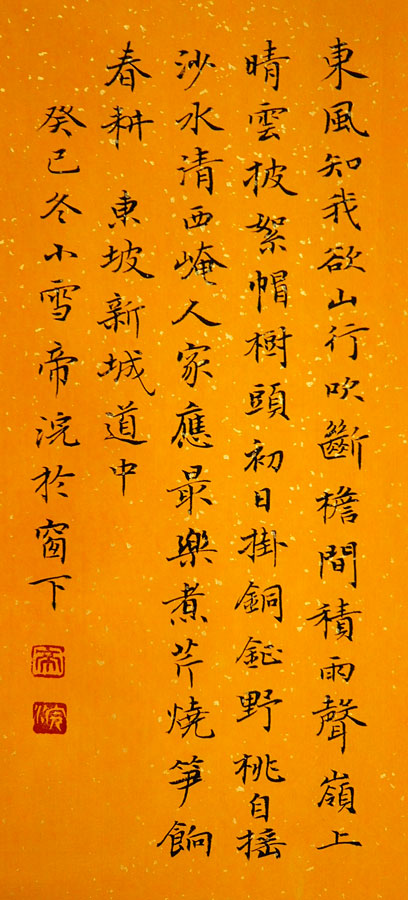 東風知我欲山行吹斷檐間積雨聲嶺上
晴雲披絮帽樹頭初日掛銅鉦野桃自摇
沙水清西崦人家應最樂煮芹燒笋餉
春耕 東坡新城道中
癸巳冬小雪帝浣於窗下
帝
浣